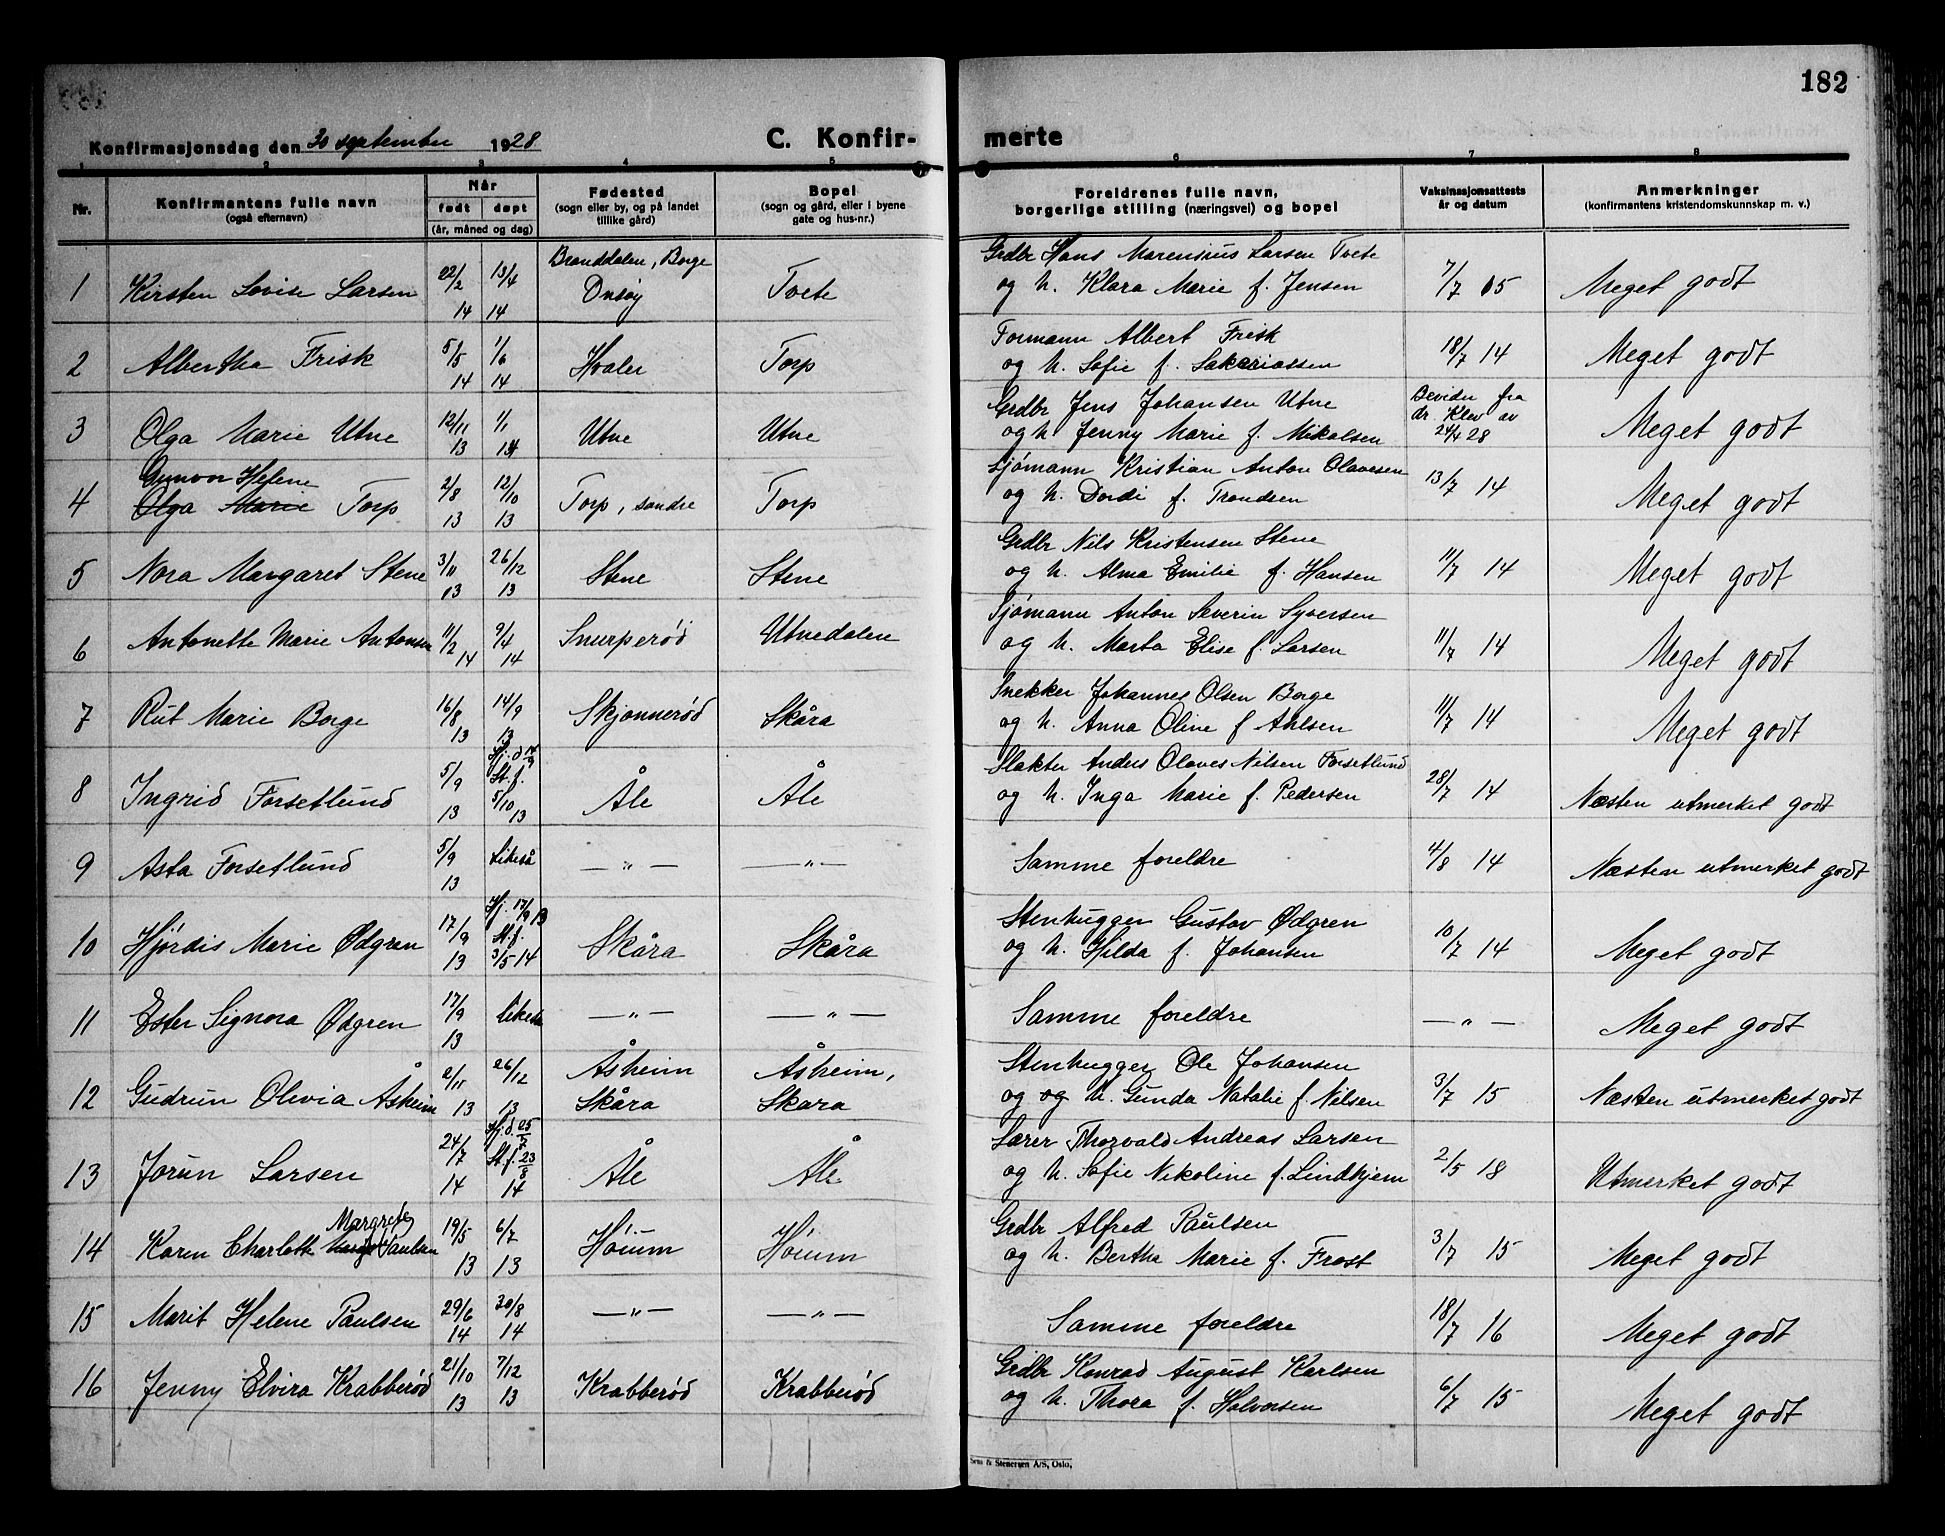 182
Konfirmasjonsdag den 30 september 1928
C. Konfir- merte
1 2 3 4 5 6 7 8
Nr. Konfirmantens fulle navn (også efternavn) Når født døpt (år, måned og dag) Fødested (sogn eller by, og på landet tillike gård) Bopel (sogn og gård, eller i byene gate og hus-nr.) Foreldrenes fulle navn, borgerlige stilling (næringsvei) og bopel Vaksinasjonsattests år og datum Anmerkninger (konfirmantens kristendomskunnskap m. v.)
1 Kirsten Lovise Larsen 22/2 14 13/4 14 Branddalen, Borge Onsøy Tvete Grdbr Hans Marensius Larsen Tvete
og h. Klara Marie f. Jensen 7/7 15 Meget godt
2 Albertha Frisk 5/5 14 1/6 14 Hvaler Torp Formann Albert Frisk
og h. Sofie f. Sakariassen 18/7 14 Meget godt
3 Olga Marie Utne 12/11 13 1/1 14 Utne Utne Grdbr Jens Johansen Utne
og h Jenny Marie f. Mikalsen Bevidn fra dr Klev av 24/4 28 Meget godt
4 Gunvor Helene
Olga Marie Torp 2/8 13 12/10 13 Torp, søndre Torp Sjømann Kristian Anton Olavesen
og h. Dordi f. Trondsen 13/7 14 Meget godt
5 Nora Margaret Stene 3/11 13 26/12 13 Stene Stene Grdbr Nils Kristensen Stene
og h. Alma Emilie f. Hansen 11/7 14 Meget godt
6 Antonette Marie Antonsen 11/2 14 9/4 14 Snurperød Utnedalen Sjømann Anton Severin Syversen
og h. Marta Elise f. Larsen 11/7 14 Meget godt
7 Rut Marie Borge 16/8 13 14/9 13 Skjønnerød Skåra Snekker Johannes Olsen Borge
og h. Anna Oline f Ahlsen 11/7 14 Meget godt
8 Ingrid Forsetlund 5/9 13 Hj. d. St. f. 5/10 13 Åle Åle Slakter Anders Olaves Nilsen Forsetlund
og h. Inga Marie f. Pedersen 28/7 14 Næsten utmerket godt
9 Asta Forsetlund 5/9 13 Likeså — „ — — „ — Samme foreldre 4/8 14 Næsten utmerket godt
10 Hjørdis Marie Ødgren 17/9 13 Hj. 17/9 13 St. f. 3/5 14 Skåra Skåra Stenhugger Gustav Ødgren
og h. Hilda f. Johansen 10/7 14 Meget godt
11 Ester Signora Ødgren 17/9 13 Likeså — „ — — „ — Samme foreldre — „ — Meget godt
12 Gudrun Olivia Åsheim 2/11 13 26/12 13 Åsheim Skåra Åsheim, Skåra Stenhugger Ole Johansen
og og h. Gunda Natalie f. Nilsen 3/7 15 Næsten utmerket godt
13 Jorun Larsen 24/7 14 Hj. d. 25/7 St. f. 23/8 14 Åle Åle Lærer Thorvald Andreas Larsen
og h. Sofie Nikoline f. Lindhjem 2/5 18 Utmerket godt
14 Karen Charlotte Margrete Paulsen 19/5 13 6/7 13 Høium Høium Grdbr Alfred Paulsen
og h. Bertha Marie f. Frost 3/7 15 Meget godt
15 Marit Helene Paulsen 29/6 14 30/8 14 — „ — — „ — Samme foreldre 18/7 16 Meget godt
16 Jenny Elvira Krabberød 21/10 13 7/12 13 Krabberød Krabberød Grdbr Konrad August Karlsen
og h. Thora f. Halvorsen 6/7 15 Meget godt
& Stenersen A/S, Oslo,